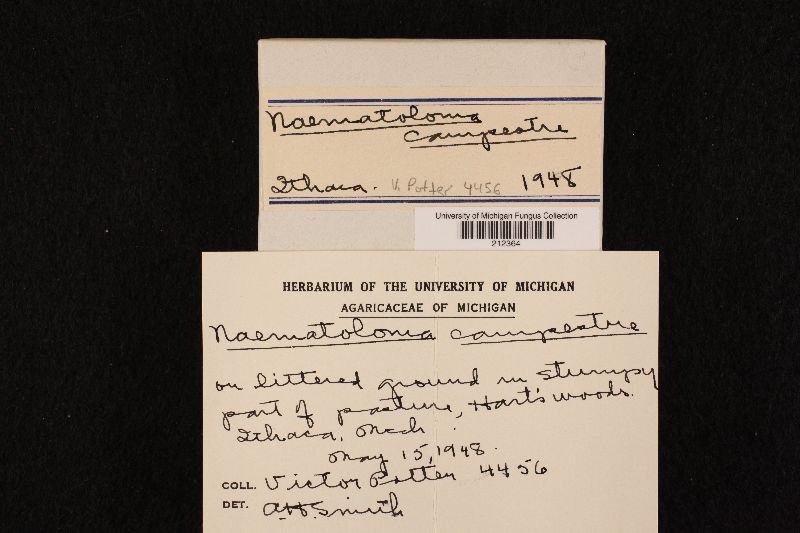 Naematoloma
campestre
Ithaca. V. Potter 4456 1948
University of Michigan Fungus Collection
212364
HERBARIUM OF THE UNIVERSITY OF MICHIGAN
AGARICACEAE OF MICHIGAN
Naematoloma campestre
on littered ground in stumpy
part of pasture, Hart's woods.
Ithaca, Mich.
May 15, 1948.
COLL. Victor Potter 4456
DET. AHSmith